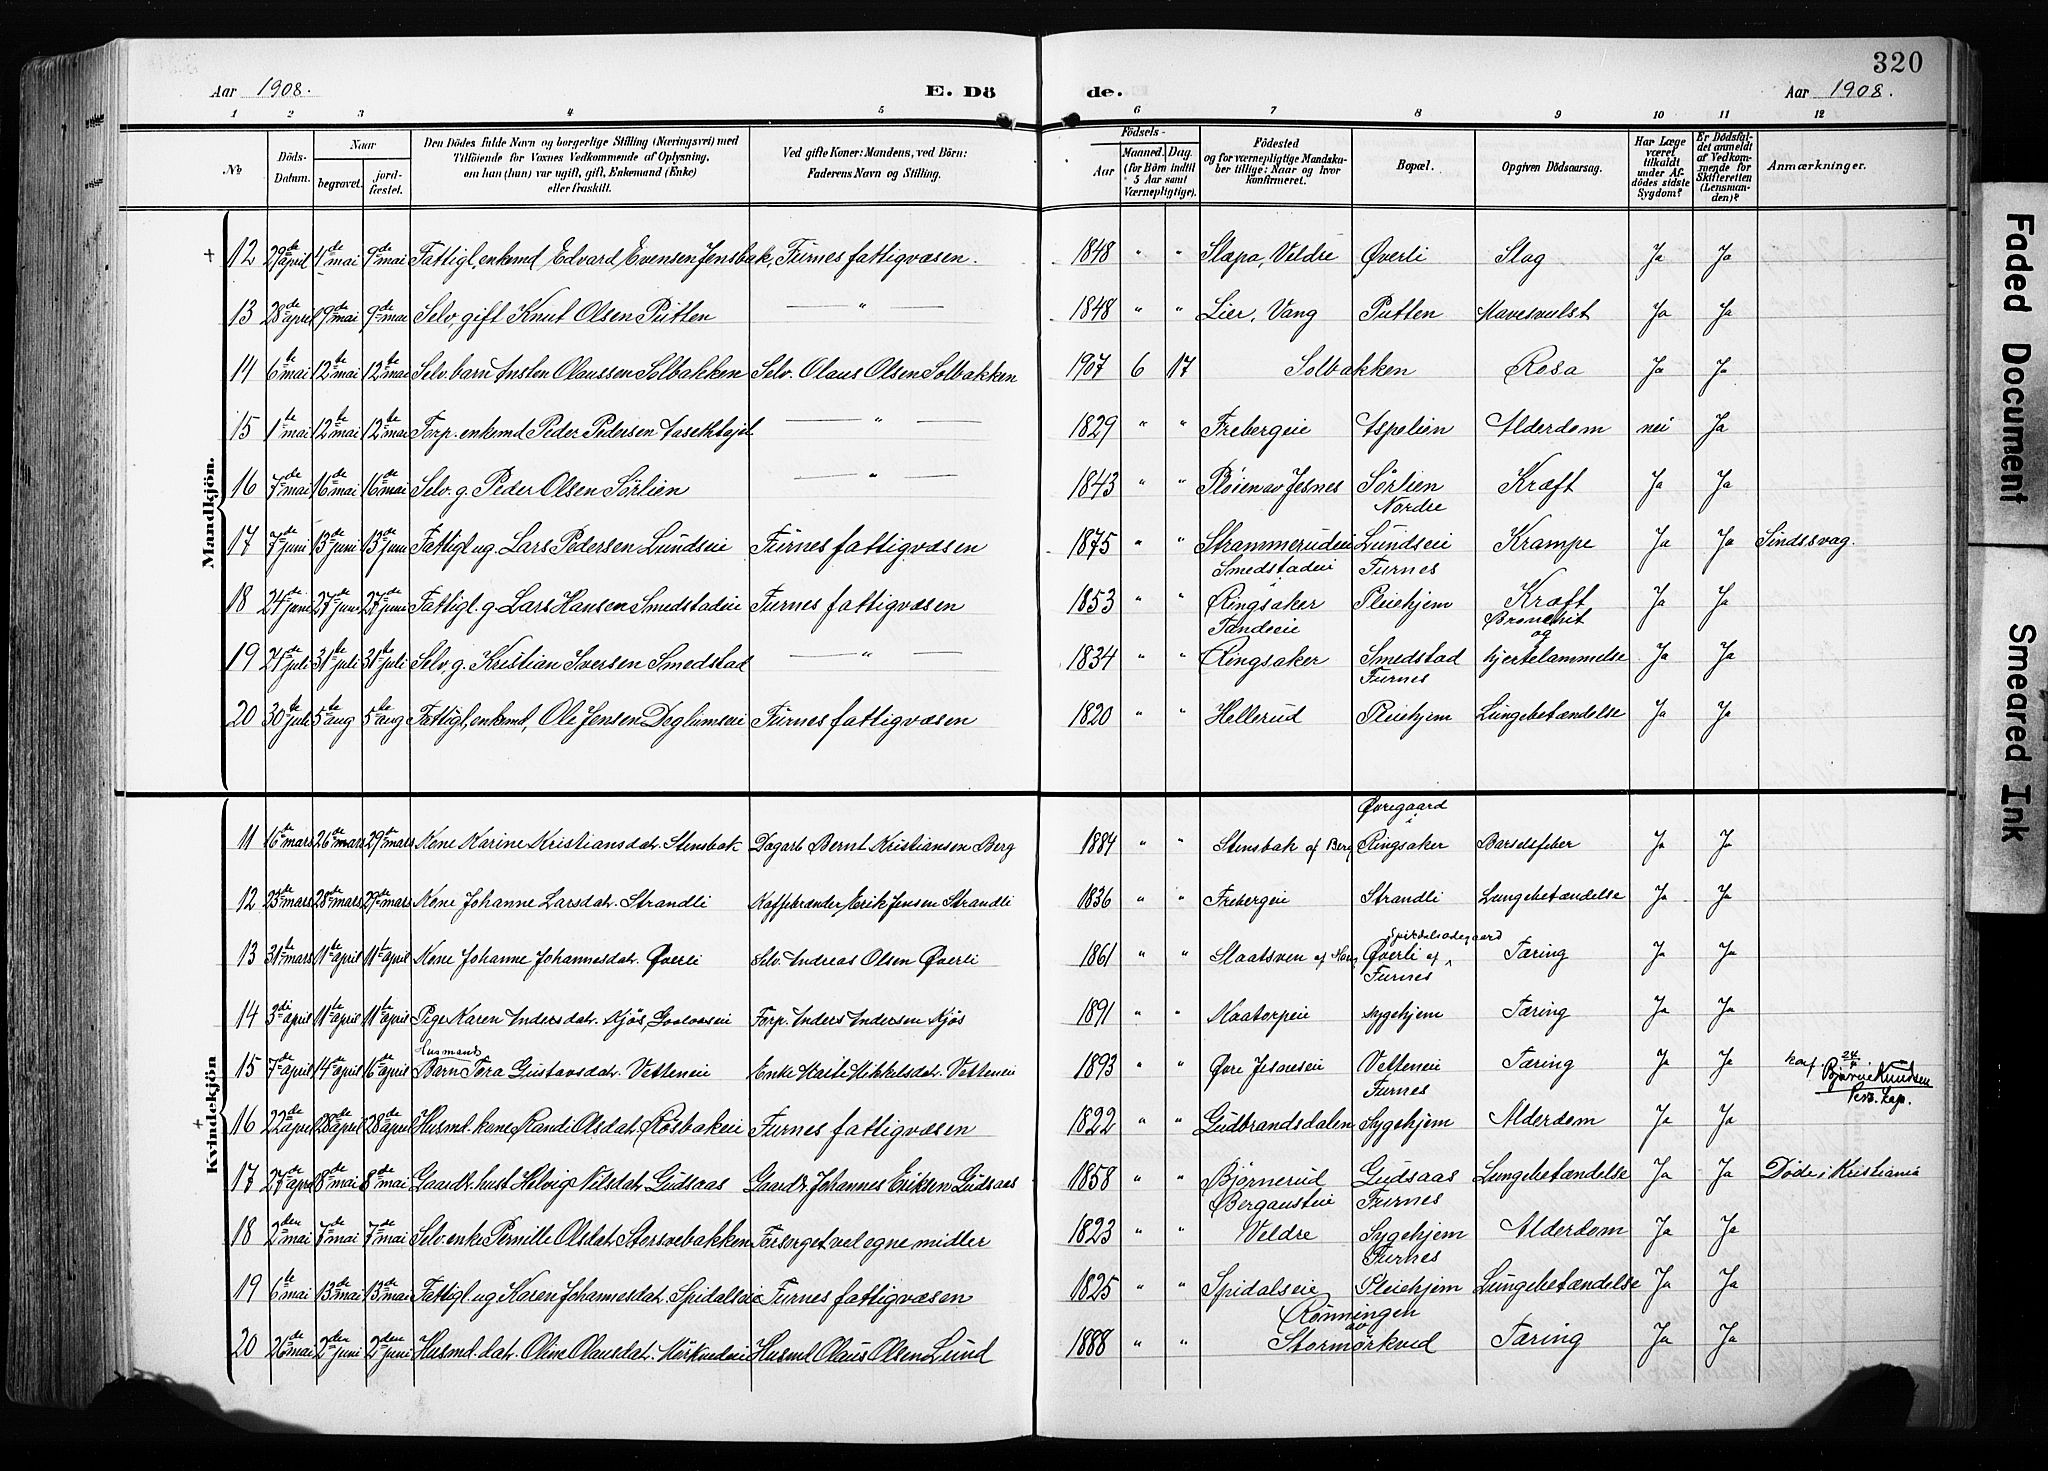 320
Aar 1908. E. Dö de. Aar 1908.
1 2 3 4 5 6 7 8 9 10 11 12
No Döds-Datum. Naar begravet. jord-fæstet. Den Dödes fulde Navn og borgerlige Stilling (Næringsvei) med Tilföiende for Voxnes Vedkommende af Oplysning, om han (hun) var ugift, gift, Enkemand (Enke) eller fraskilt. Ved gifte Koner: Mandens, ved Börn: Faderens Navn og Stilling. Födsels- Aar Maaned. Dag. (for Börn indtil 5 Aar samt Værnepligtige). Födested og for værnepligtige Mandskaber tillige: Naar og hvor konfirmeret. Bopæl. Opgiven Dödsaarsag. Har Læge været tilkaldt under Afdödes sidste Sygdom? Er Dödsfaldet anmeldt af Vedkommende for Skifteretten (Lensmanden)? Anmærkninger.
Mandkjön.
+ 12 29de april 11de mai 9de mai Fattigl, enkemd Edvard Evensen Jensbak, Furnes fattigvæsen. 1848 " " Slæpa, Veldre Øverli Slag Ja Ja
13 28de april 19de mai 9de mai Selv, gift Knut Olsen Putten — " — 1848 " " Lier, Vang Putten Mavesvulst Ja Ja
14 6te mai 12te mai 12te mai Selv. barn Anston Olaussen Solbakken Selv. Olaus Olsen Solbakken 1907 6 17 Solbakken Rosa Ja Ja
15 1te mai 12te mai 12te mai Torp. enkemd Peder Pedersen — " — 1829 " " Frebergeie Aspelien Alderdom nei Ja
16 7de mai 16de mai 16de mai Selv. g. Peder Olsen Sørlien — " — 1843 " " Pløien av Jesnes Sørlien Nordre Kræft Ja Ja
17 7de juni 13de juni 13de juni Fattigl ug. Lars Pedersen Lundseie Furnes fattigvæsen 1875 " " Strammerudeie Lundseie Furnes Krampe Ja Ja Sindssvag.
18 24de juni 27de juni 27de juni Fattigl. g. Lars Hansen Smedstadeie Furnes fattigvæsen 1853 " " Smedstadeie i Ringsaker Pleiehjem Kræft Ja Ja
19 24de juli 31te juli 31te juli Selv. g. Kristian Iversen Smedstad — " — 1834 " " Tandeeie Ringsaker Smedstad Furnes Bronchit og hjertelammelse Ja Ja
20 30te juli 5te aug 5te aug Fattigl, enkemd, Ole Jensen Deglumseie Furnes fattigvæsen 1820 " " Hellerud Pleiehjem Lungebetændelse Ja Ja
Kvindekjön
11 16de mars 26de mars 29de mars Kone Karine Kristiansdat. Stensbak Dagarb Bernt Kristiansen Berg 1884 " " Stensbak af Berg Øvregaard i Ringsaker Barselfeber Ja Ja
12 23de mars 28de mars 29de mars Kone Johanne Larsdat. Strandli Kaffebrænder Erik Jensen Strandli 1836 " " Frebergeie Strandli Lungebetændelse Ja Ja
13 31te mars 11te april 11te april Kone Johanne Johannesdat. Øverli Selv. Andreas Olsen Øverli 1861 " " Staatsven af Øverli af Spirdelsødegaard Furnes Tæring Ja Ja
14 3di april 11te april 11te april Pige Karen Andersdat. Kjøs, Torp. Anders Andersen Kjøs 1891 " " Kvatorpeie Sygehjem Tæring Ja Ja
15 7de april 14de april 16de april Husmands Barn Tora Gustavsdat. Vetteneie Enke Marte Mikkelsdat. Vetteneie 1893 " " Øvre Jesneseie Vetteneie Furnes Tæring Ja Ja konf. 24 Bjarne Knudsen Pers. kap.
+ 16 22de april 28de april 28de april Husml. kone Randi Olsdat. Røsbakeie Furnes fattigvæsen 1822 " " Gudbrandsdalen Sygehjem Alderdom Ja Ja
17 27de april 8de mai 8de mai Gaardbr. hust Helvig Nilsdat. Gudsaas Gaardbr. Johannes Eriksen Gudsaas 1858 " " Bjørnerud Gudsaas Furnes Lungebetændelse Ja Ja Døde i Kristiania
18 2den mai 7de mai 7de mai Selv. enke Pernille Olsdat. Storsvebakken Forsørget vel egne midler 1823 " " Bergausteie Veldre Sygehjem Furnes Alderdom Ja Ja
19 6te mai 13de mai 13de mai Fattigl. ug Karen Johannesdat. Spidalseie Furnes fattigvæsen 1825 " " Spidalseie Pleiehjem Lungebetændelse Ja Ja
20 26de mai 2den juni 2den juni Husmd. dat. Oline Olausdat. Mørkvedeie Husmd Olaus Olsen Lund 1888 " " Rønningen av Stormørkved Tæring Ja Ja
Faded Document
Smeared Ink